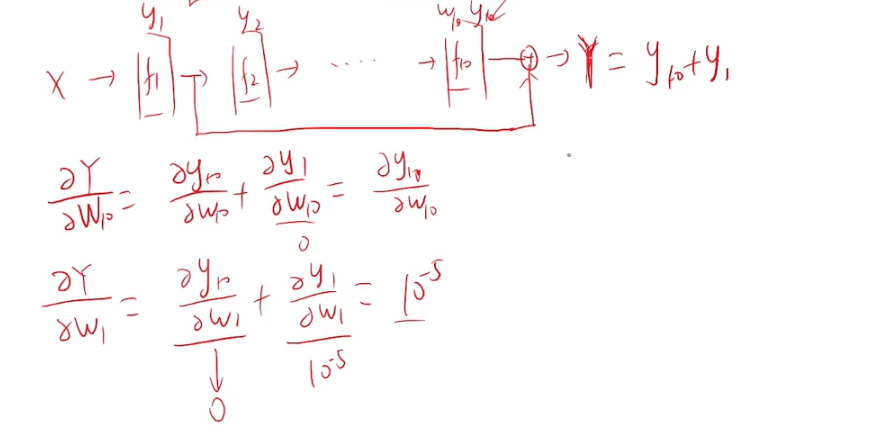 y₁ y₂ w₁₀ y₁₀
X → f₁ → f₂ → ····· → f₁₀ → ⊕ → Y = y₁₀ + y₁
∂Y/∂W₁₀ = ∂y₁₀/∂w₁₀ + ∂y₁/∂w₁₀ = ∂y₁₀/∂w₁₀
0
∂Y/∂w₁ = ∂y₁₀/∂w₁ + ∂y₁/∂w₁ = 10⁻⁵
↓ 10⁻⁵
0